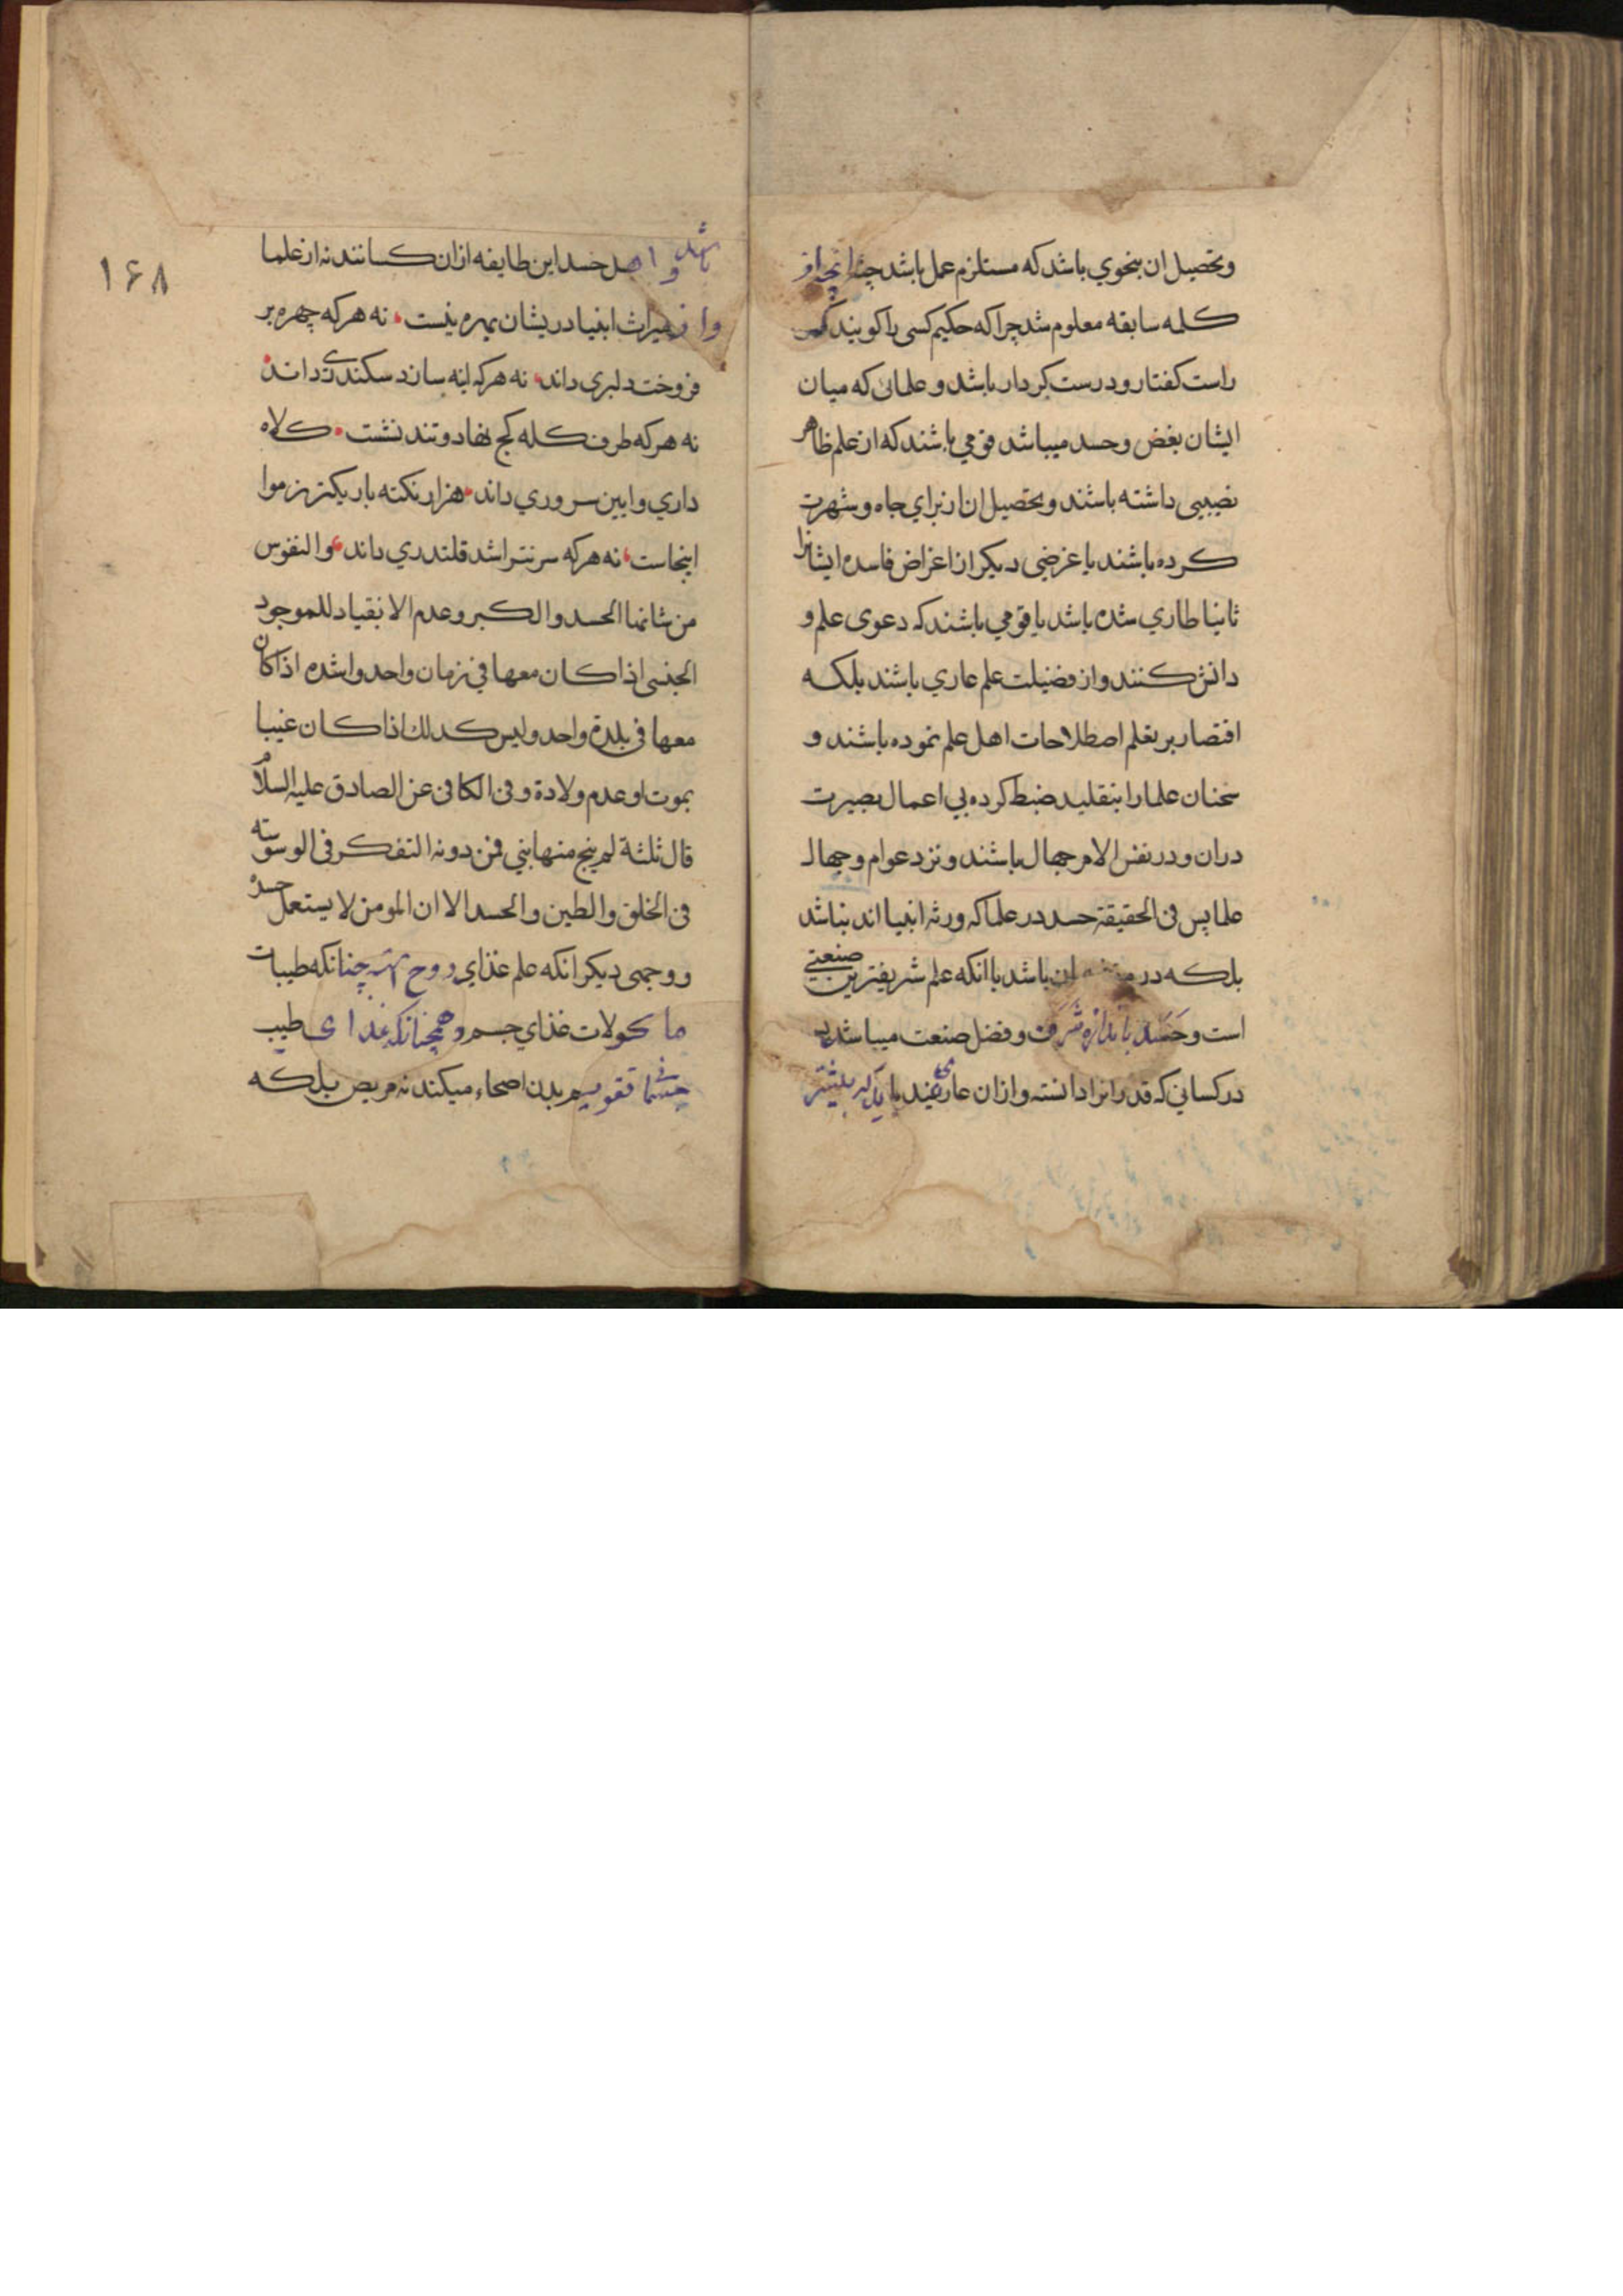 وتحصیل ان بنحوي باشد که مستلزم عمل باشد چنانچه از
کلمه سابقه معلوم شد چرا که حکیم کسی را کویند که
راست کفتار و درست کردار باشد و علمائی که میان
ایشان بغض و حسد میباشد قومي باشند که از علم ظاهر
نصیبی داشته باشند و تحصیل ان از برای جاه و شهرت
کرده باشند یا غرضی دیکر از اغراض فاسده ایشانرا
ثانیا طاري شده باشد یا قومي باشند که دعوی علم و
دانش کنند و از فضیلت علم عاري باشند بلکه
اقتصار بر تعلم اصطلاحات اهل علم نموده باشند و
سخنان علما را بتقلید ضبط کرده بي اعمال بصیرت
دران و در نفس الامر جهال باشند و نزد عوام و جهال
علما پس فی الحقیقة حسد در علما که ورثه انبیا اند نباشد
بلکه در ان باشد با انکه علم شریفترین صنعتي
است و حسد باندازه شرف و فضل صنعت میباشد
در کساني که قدر انرا دانسته و از ان عاري‌اند باید که بیشتر
۱۶۸
باشد و اهل حسد این طایفه ازان کسانند نه از علما
و از میراث انبیا در یشان بهره نیست نه هر که چهره بر
فروخت دلبری داند نه هر که اینه سازد سکندری داند
نه هر که طرف کله کج نهاد و تند نشست کلاه
داري و ایین سروري داند هزار نکته باریکتر ز موا
اینجاست نه هر که سر نتراشد قلندري داند والنفوس
من شانها الحسد و الکبر و عدم الانقیاد للموجود
الجنسی اذا کان معها في زمان واحد و اشده اذا کان
معها فی بلدة واحد و لیس کذلك اذا کان غیبا
بموت او عدم ولادة و فی الکافی عن الصادق علیه السلام
قال ثلثة لم ینج منها نبي فمن دونه التفکر فی الوسوسة
فی الخلق و الطین و الحسد الا ان المومن لا یستعمل حسده
و وجهی دیکر انکه علم غذاي روح چنانکه طیبات
ماکولات غذاي جسم و همچنانکه غذای طیب
جسمانی تقویم بدن اصحاء میکند نه مریض بلکه